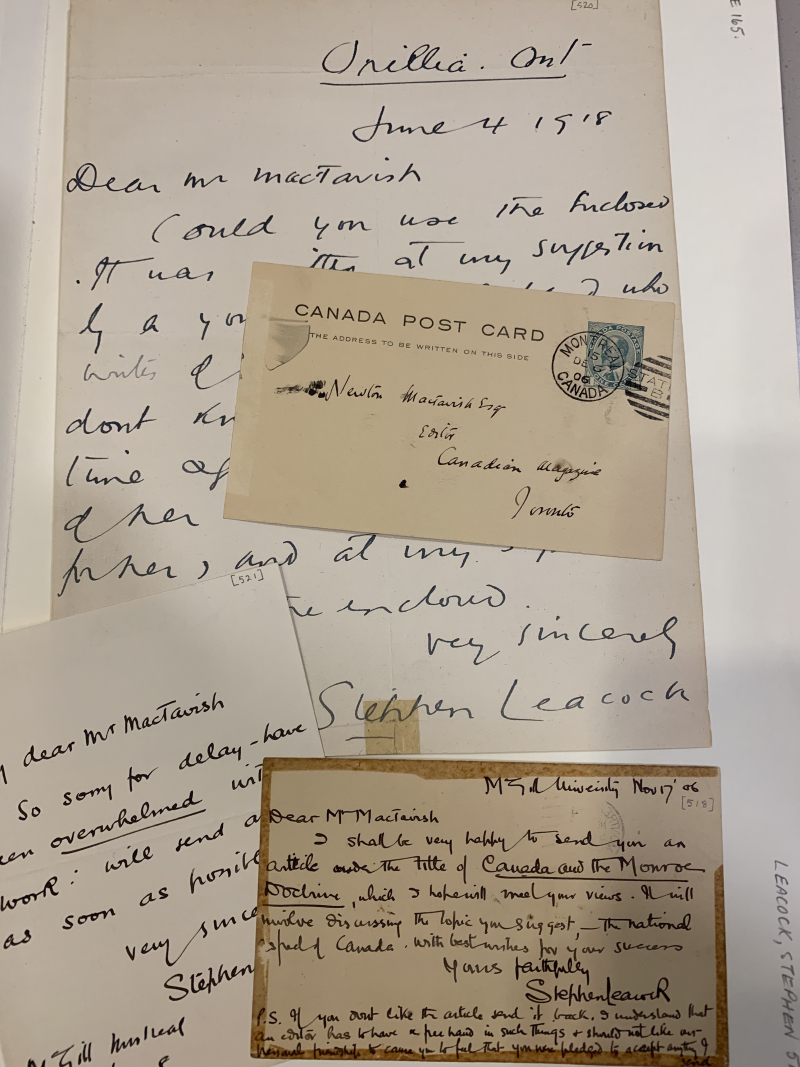 [520]
E 165.
Orillia. Ont
June 4 1918
Dear Mr MacTavish
Could you use the Enclosed
. It was at my suggestion
I who
by a
writes
dont
time
of her
for her, and at my
enclosed.
very sincerely
Stephen Leacock
CANADA POST CARD
THE ADDRESS TO BE WRITTEN ON THIS SIDE
MONTREAL
DE
06
CANADA
STATION
B
Newton Mactavish Esq
Editor
Canadian Magazine
Toronto
[521]
dear Mr MacTavish
So sorry for delay - have
overwhelmed
work: will send a
as soon as possible
very since
Stephen
McGill Montreal
McGill University Nov 17 '06
[518]
Dear Mr Mactavish
I shall be very happy to send you an
article under the title of Canada and the Monroe
Doctrine, which I hope will meet your views. It will
involve discussing the topic you suggest, - the national
aspect of Canada. With best wishes for your success
Yours faithfully
Stephen Leacock
P.S. If you dont like the article send it back. I understand that
an editor has to have a free hand in such things & should not like our
personal friendship to cause you to feel that you were pledged to accept anything I
send
LEACOCK, STEPHEN